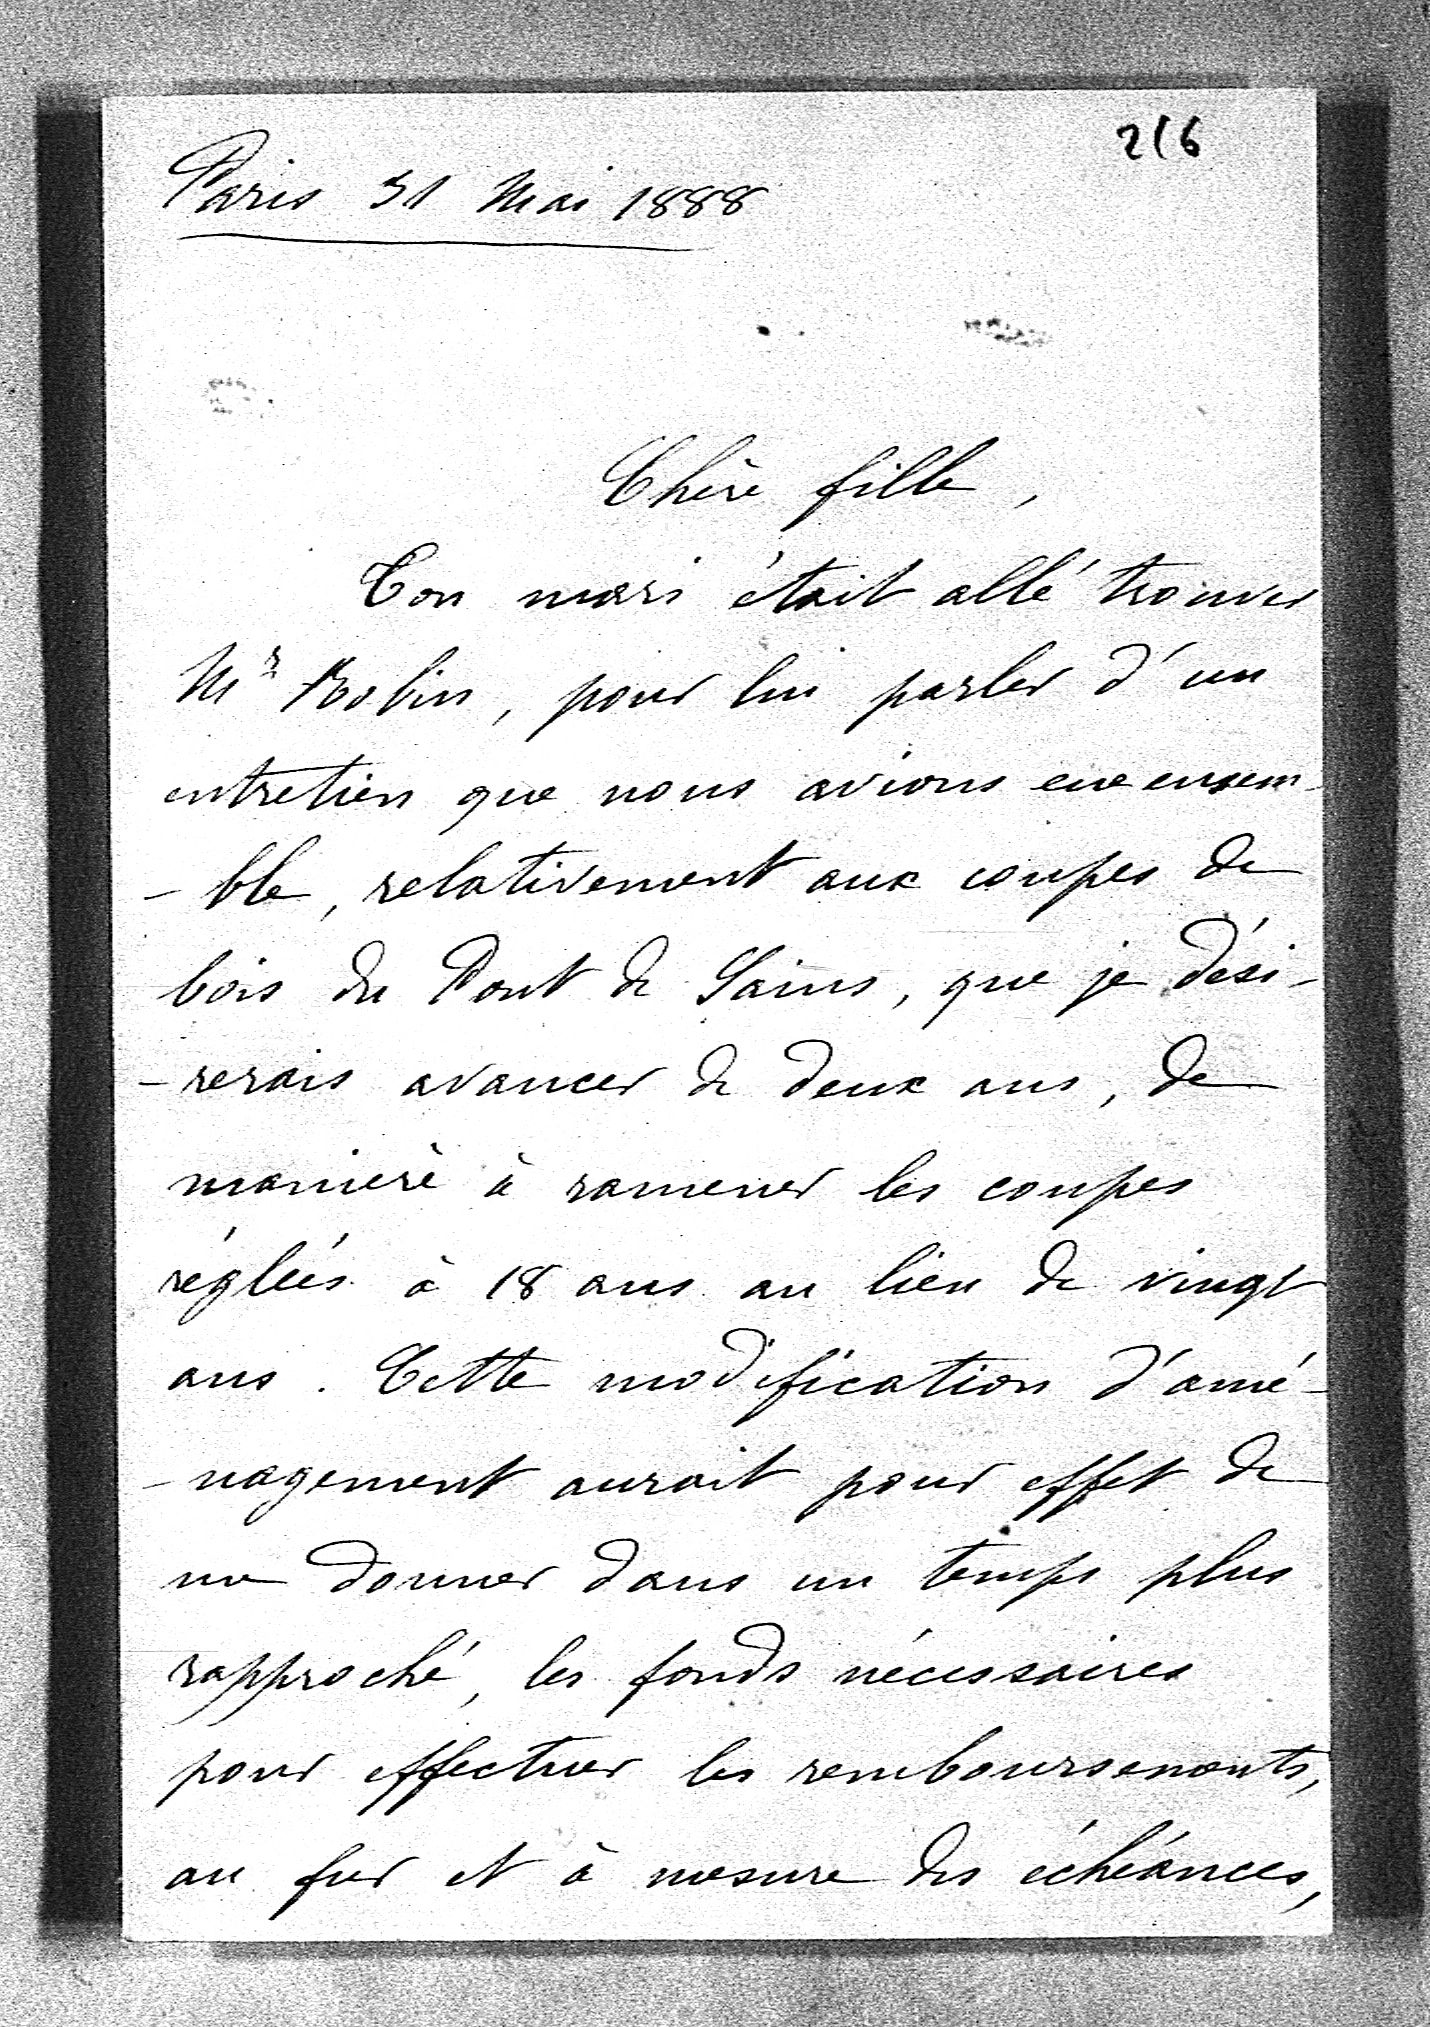 216
Paris 31 Mai 1888
Chère fille,
Ton mari était allé trouver
Mr Robin, pour lui parler d'un
entretien que nous avions eue ensem-
- ble, relativement aux coupes de
bois du Pont de Sains, que je dési-
- rerais avancer de deux ans, de
manière à ramener les coupes
réglées à 18 ans au lieu de vingt
ans. Cette modification d'amé-
- nagement aurait pour effet de
me donner dans un temps plus
rapproché, les fonds nécessaires
pour effectuer les remboursements,
au fur et à mesure des échéances,